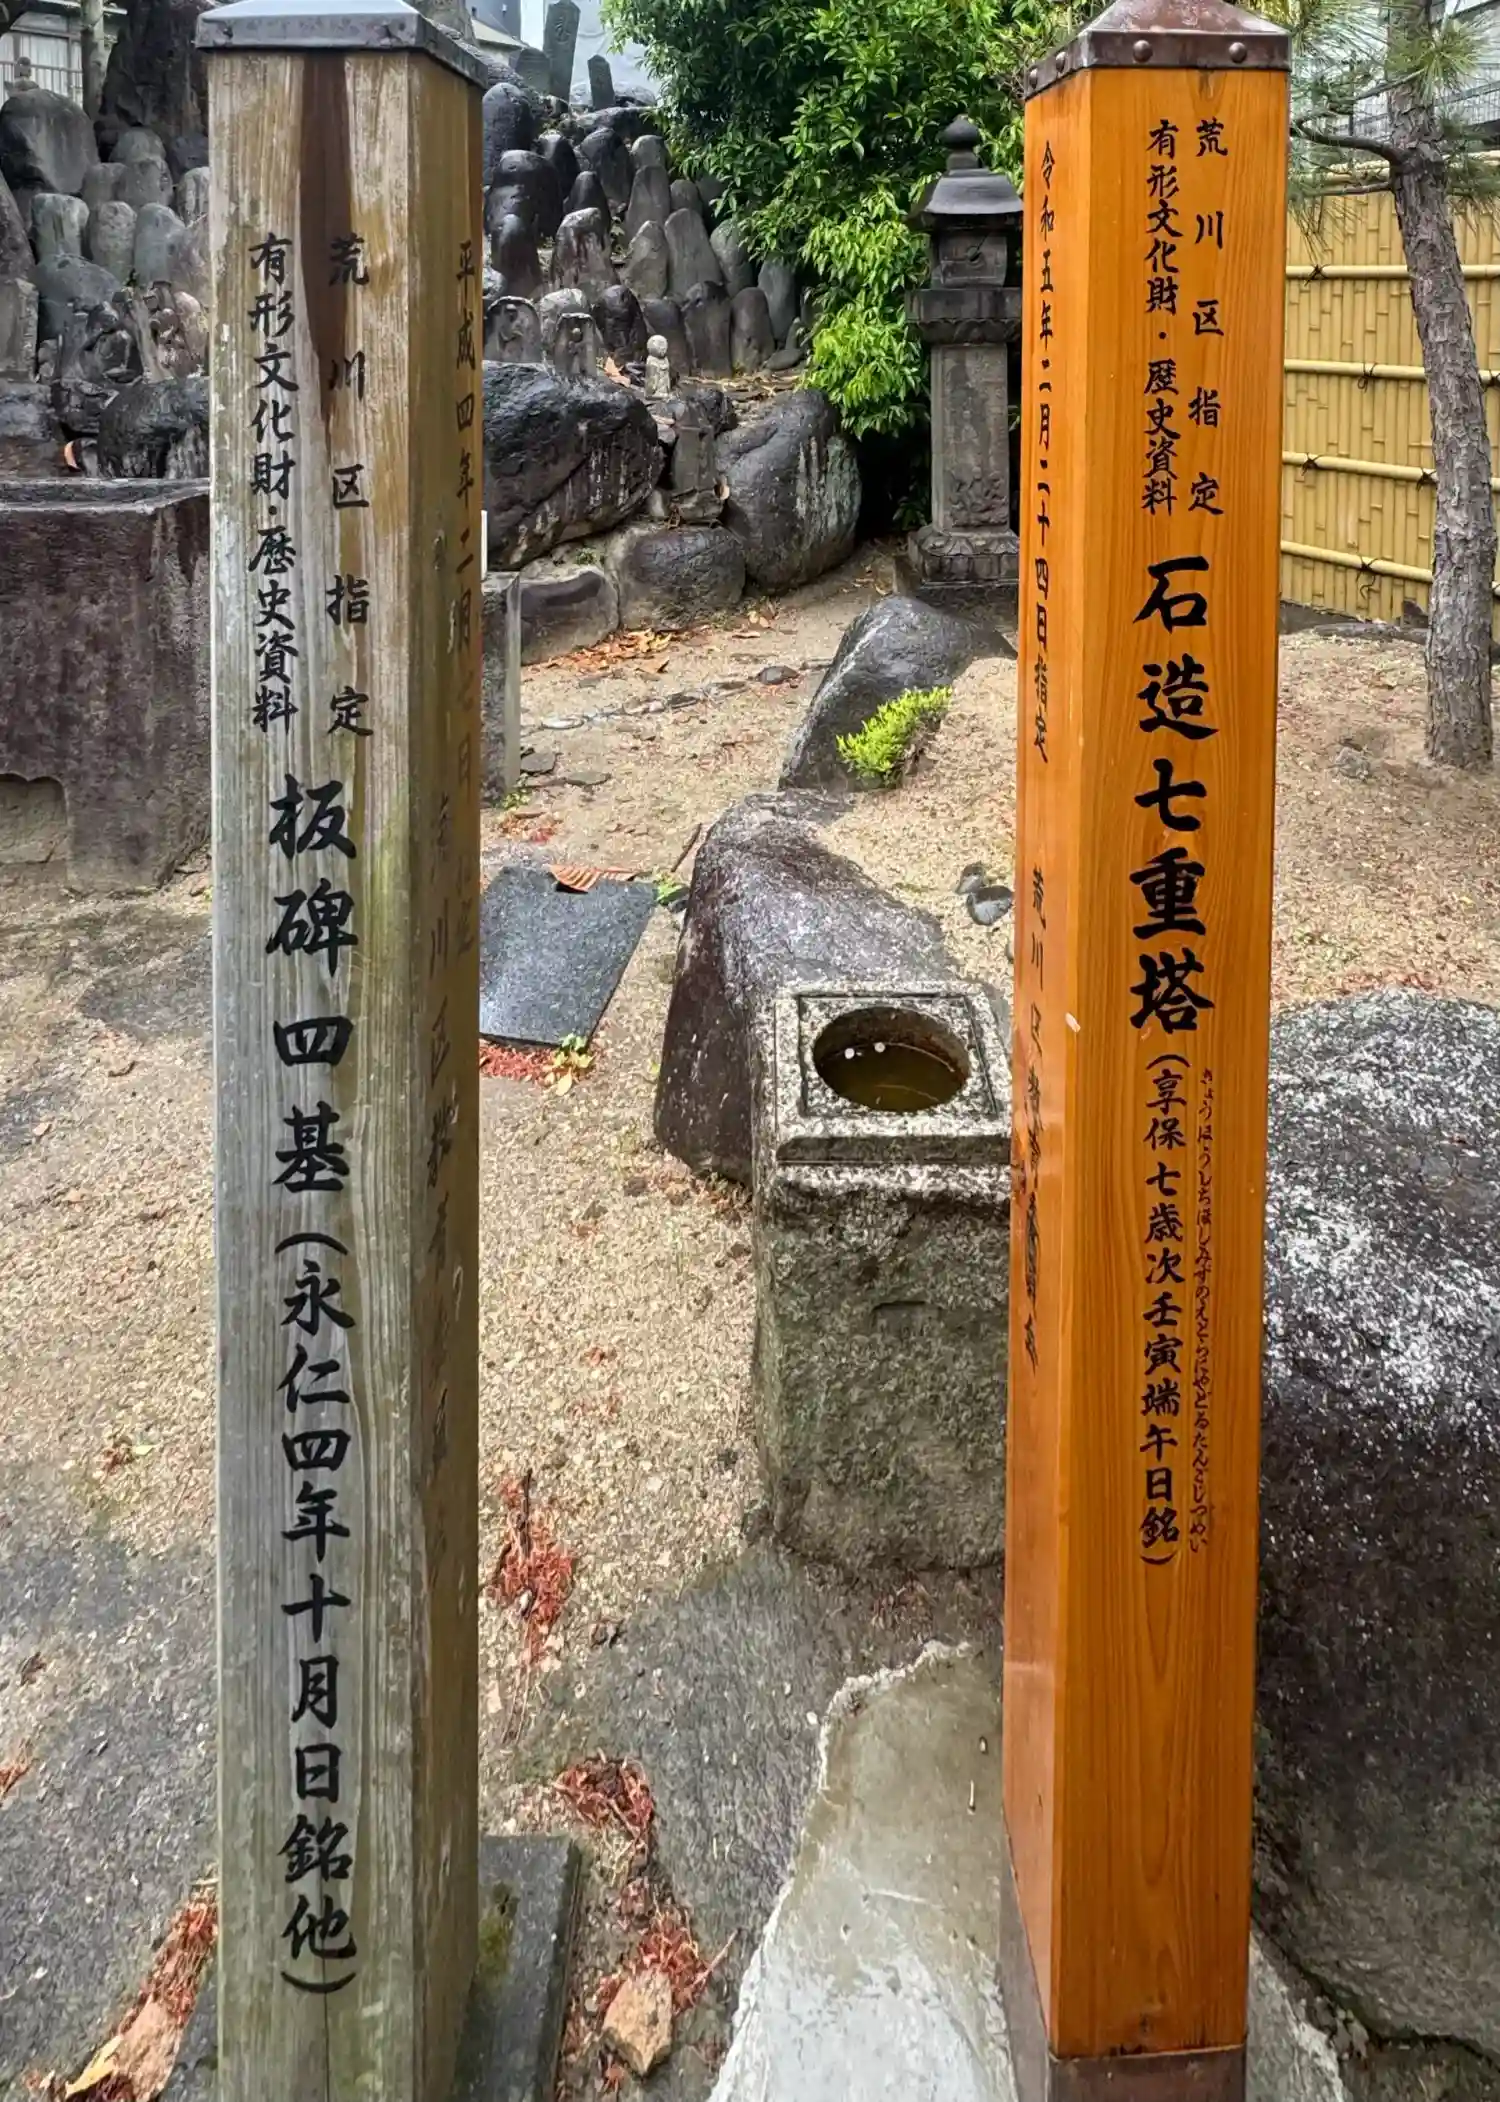 荒川区指定
有形文化財・歴史資料
石造七重塔(享保七歳次壬寅端午日銘)
きょうほうしちほしみずのえとらにやどるたんごじつめい
令和五年二月二十四日指定
荒川区教育委員会
荒川区指定
有形文化財・歴史資料
板碑四基(永仁四年十月日銘他)
平成四年二月
荒川区教